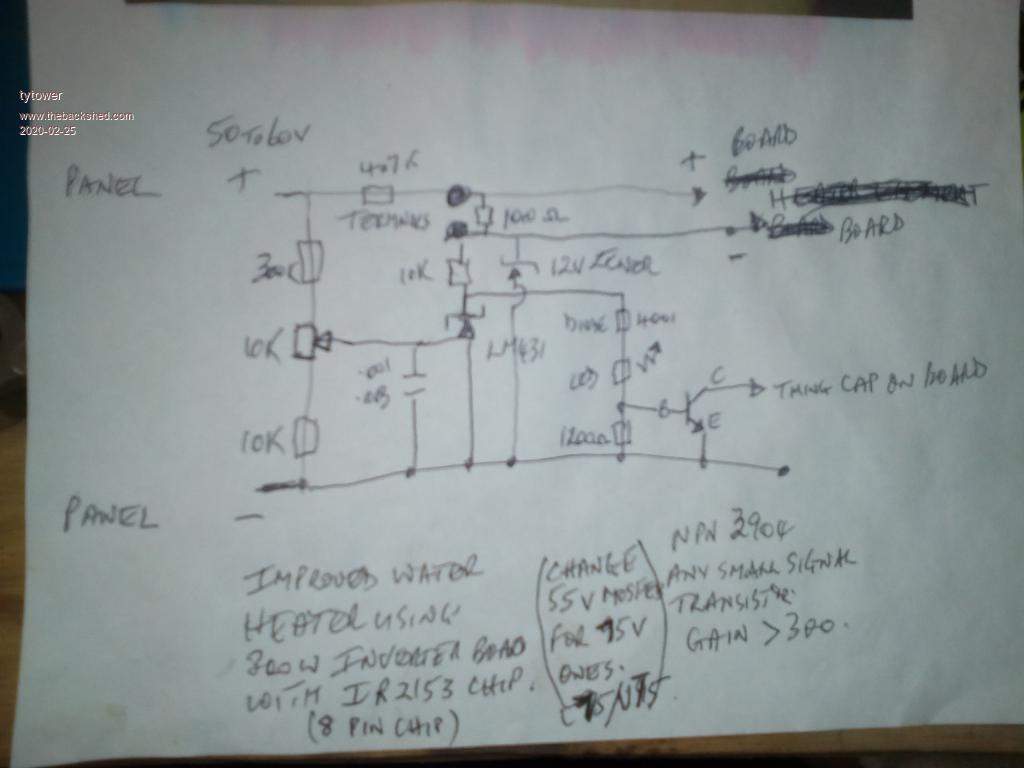 tytower
www.thebackshed.com
2020-02-25
50 TO 60V
PANEL +
4.7K
+ BOARD
TERMINALS
100 Ω
BOARD
-
10K
12V ZENER
300K
10K
LM431
DIODE 4001
.001
LED
C
B
E
TIMING CAP ON BOARD
10K
1200Ω
PANEL -
IMPROVED WATER
HEATER USING
300W INVERTER BOARD
WITH IR2153 CHIP.
(8 PIN CHIP)
(CHANGE
55V MOSFETS
FOR 75V
ONES.
NPN 3904
ANY SMALL SIGNAL
TRANSISTOR
GAIN >300.